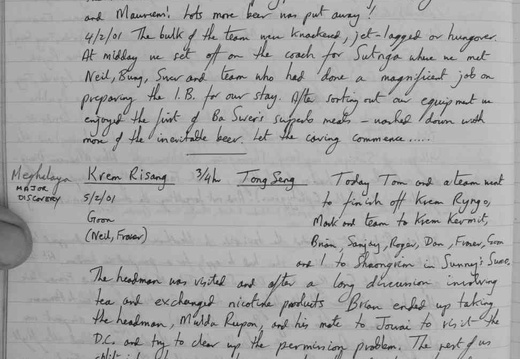 and Maureens! Lots more beer was put away!
4/2/01 The bulk of the team were knackered, jet-lagged or hungover.
At midday we set off on the coach for Sutnga where we met
Neil, Bung, Swer and team who had done a magnificent job on
preparing the I.B. for our stay. After sorting out our equipment we
enjoyed the first of Ba Swer's superb meals - washed down with
more of the inevitable beer. Let the caving commence.....
Meghalaya
MAJOR
DISCOVERY
Krem Risang 3/4h Tong Seng
5/2/01
Goon
(Neil, Fraser)
Today Tom and a team went
to finish off Krem Ryngo,
Mark and team to Krem Kermit,
Brian, Sanjay, Roger, Dan, Goon
and I to Shnongrim in Sunny's Sumo.
The headman was visited and after a long discussion involving
tea and exchanged nicotine products Brian ended up taking
the headman, and his mate to Jowai to visit the
D.C. and try to clear up the permission problem. The rest of us